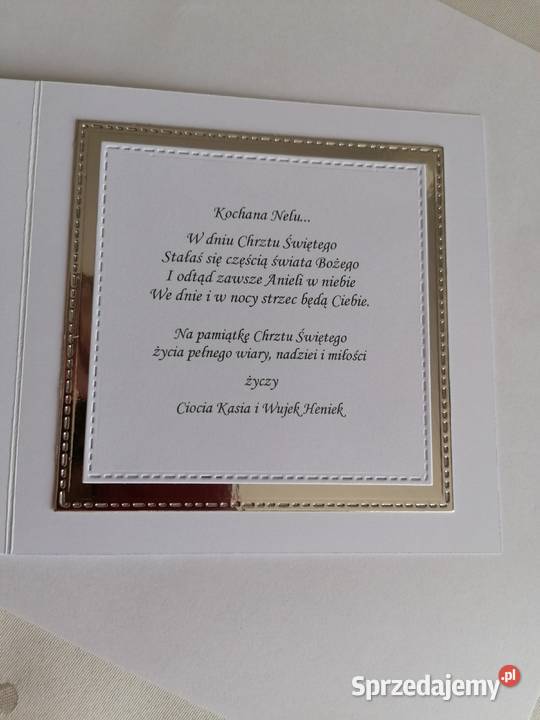 Kochana Nelu...
W dniu Chrztu Świętego
Stałaś się częścią świata Bożego
I odtąd zawsze Anieli w niebie
We dnie i w nocy strzec będą Ciebie.
Na pamiątkę Chrztu Świętego
życia pełnego wiary, nadziei i miłości
życzy
Ciocia Kasia i Wujek Heniek
Sprzedajemy.pl